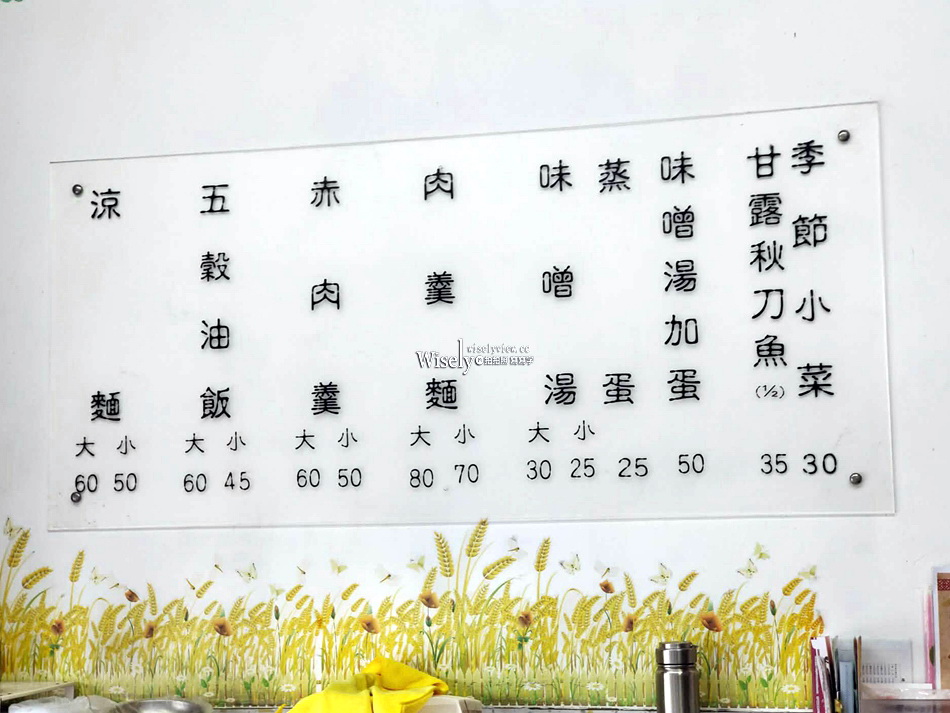 季節小菜
30
甘露秋刀魚(½)
35
味噌湯加蛋
50
蒸蛋
25
味噌湯
大 小
30 25
肉羹麵
大 小
80 70
赤肉羹
大 小
60 50
五穀油飯
大 小
60 45
涼麵
大 小
60 50
Wisely
wiselyview.cc